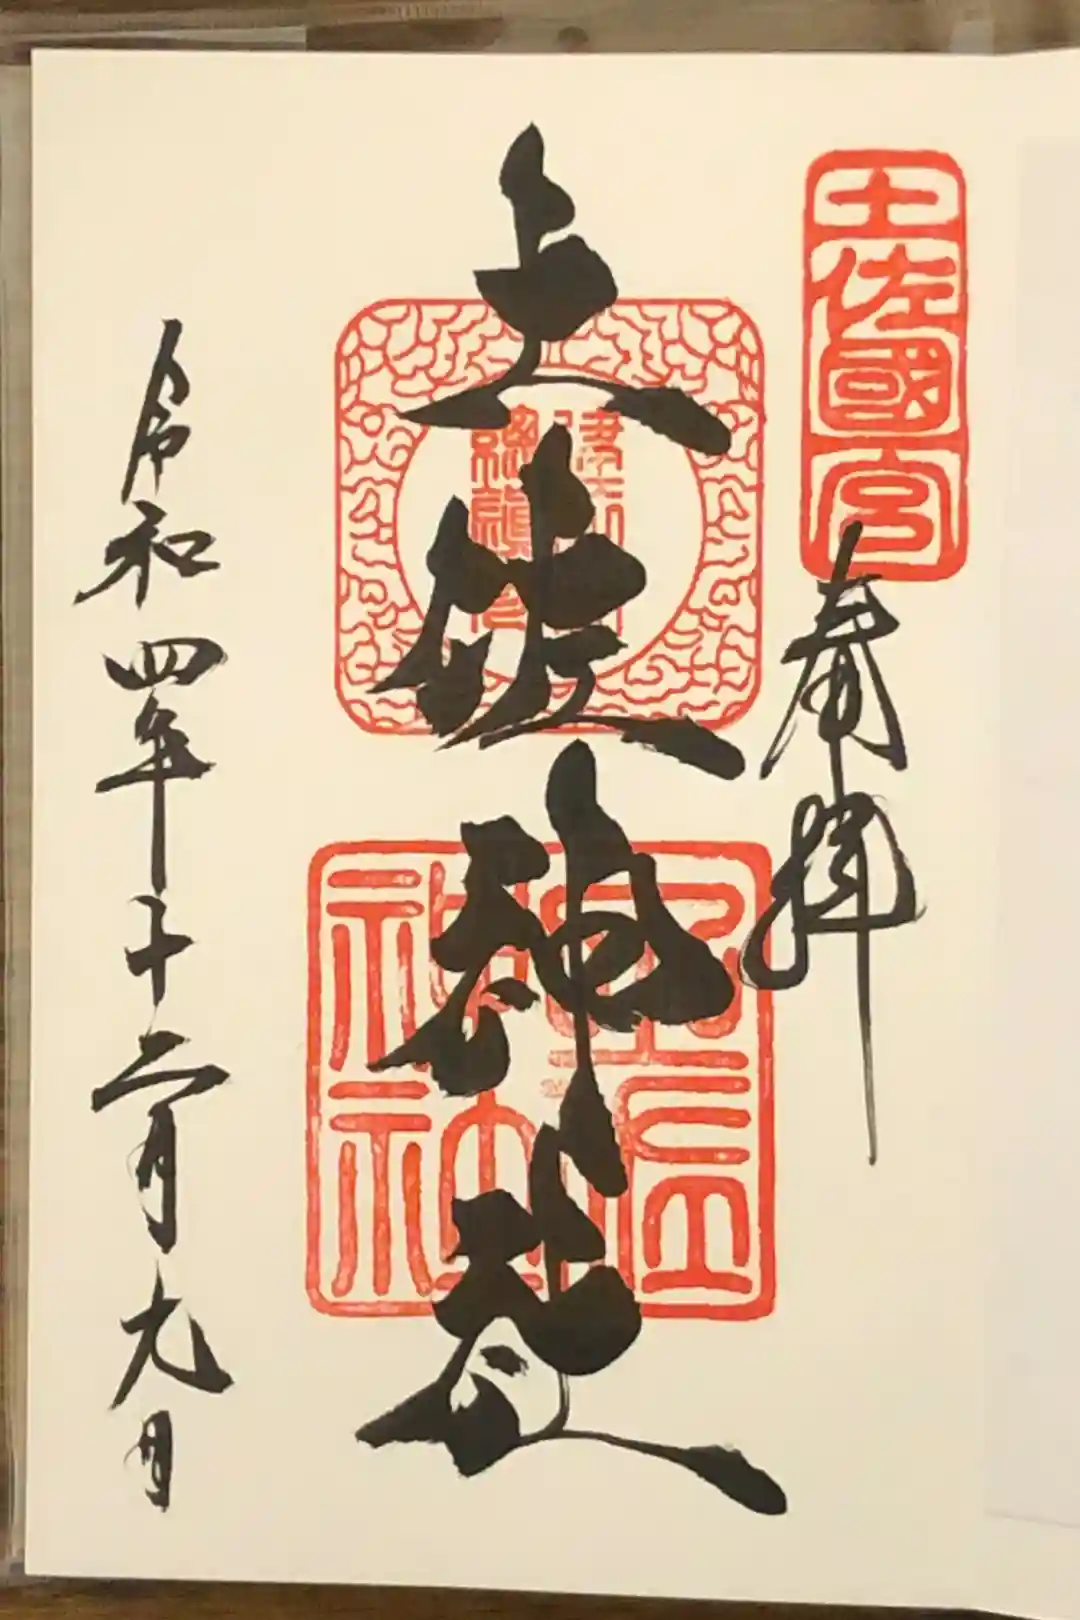 土佐國一宮
奉拝
土佐神社
土佐神社
令和四年十二月九日